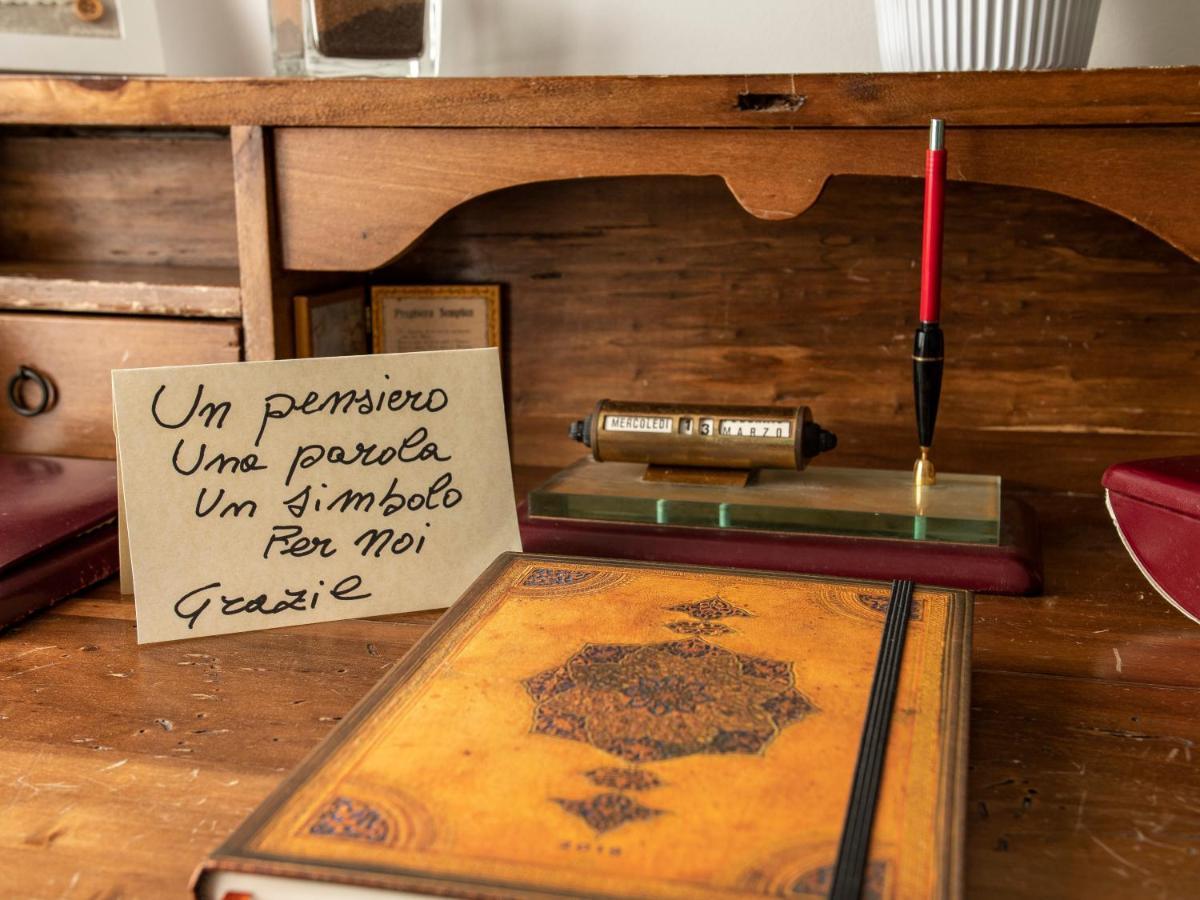 Preghiera Semplice
Un pensiero
Una parola
Un simbolo
Per Noi
Grazie
MERCOLEDI 13 MARZO